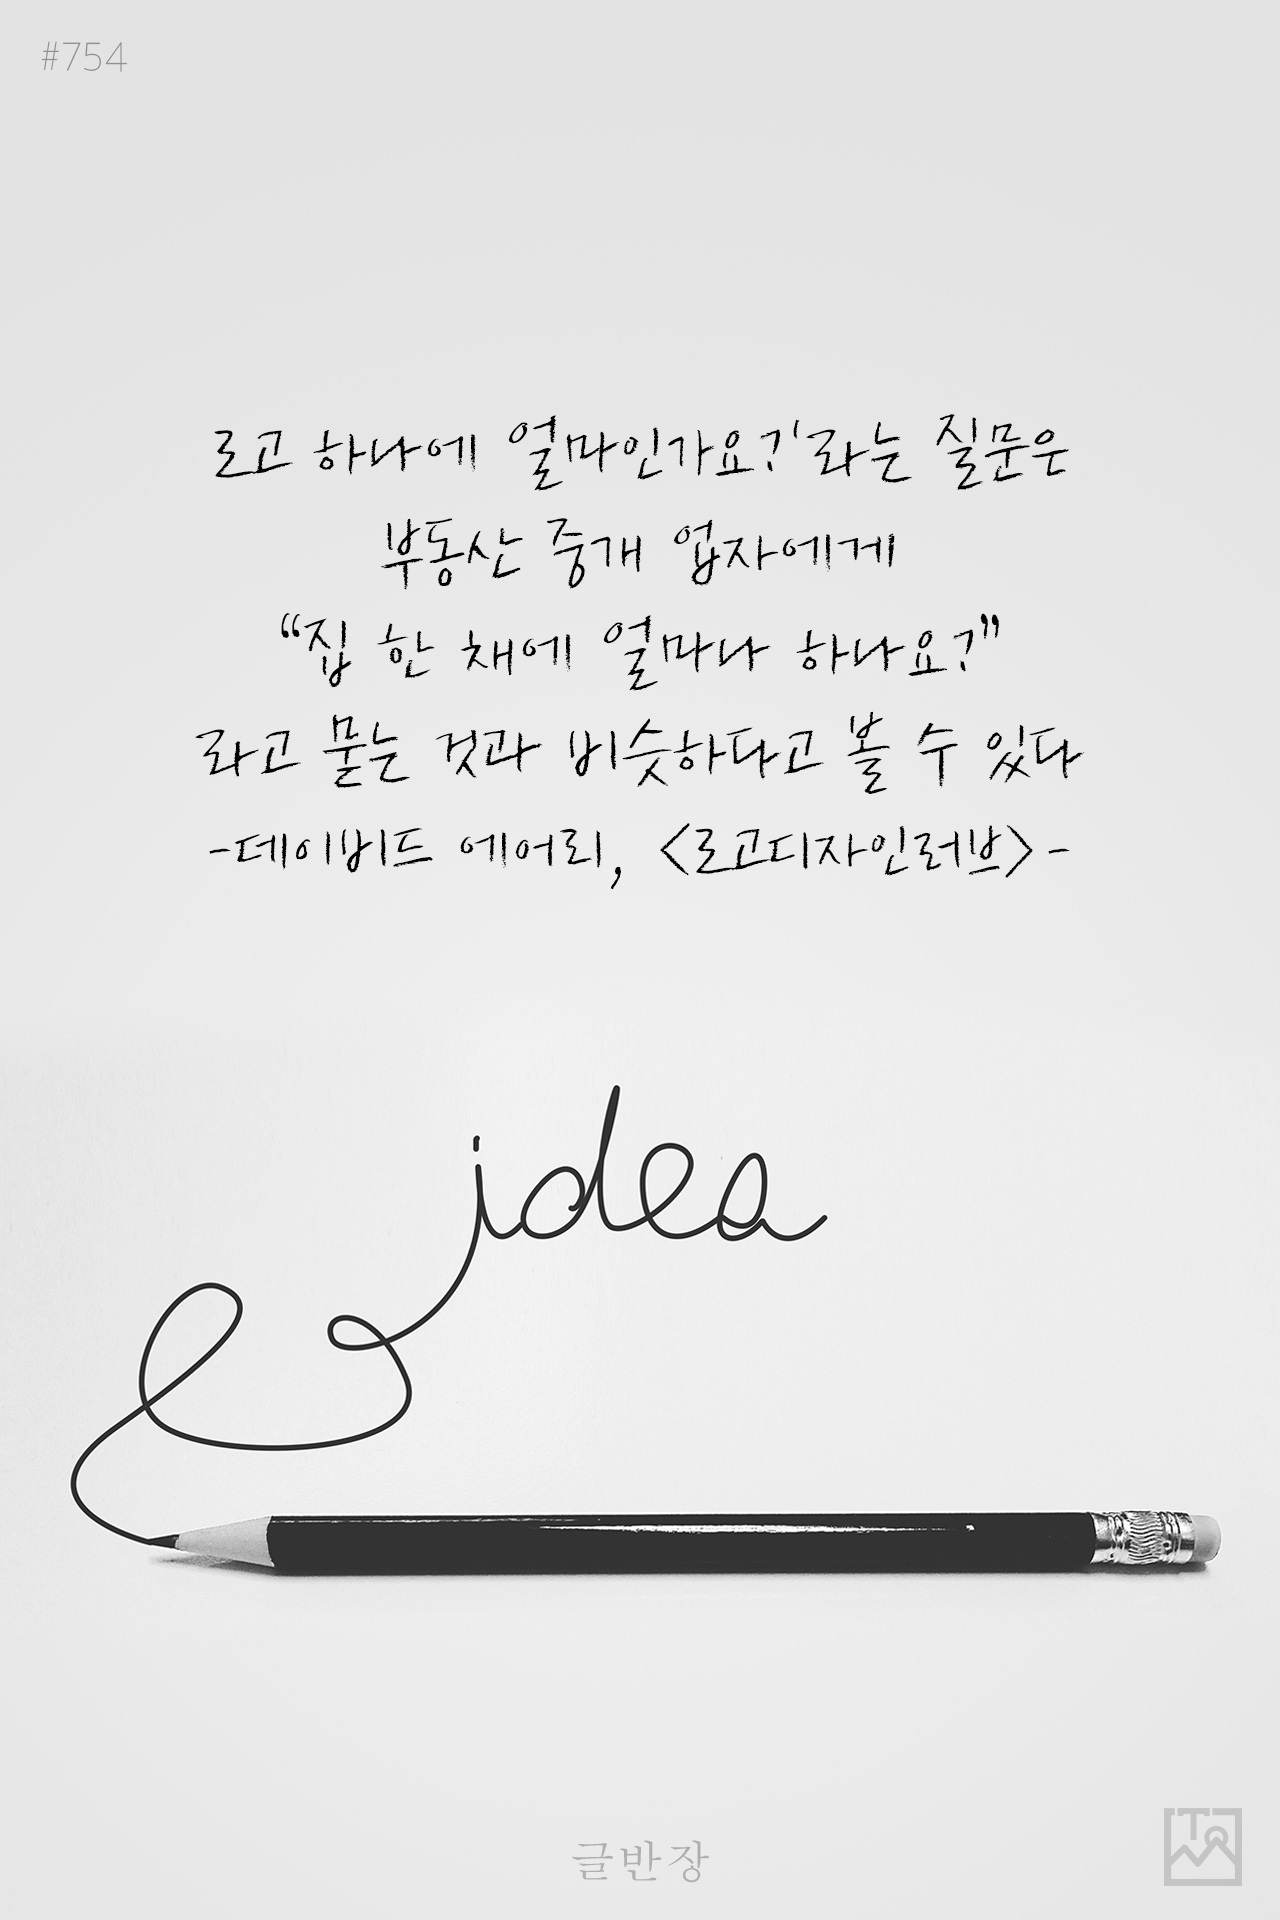 #754
로고 하나에 얼마인가요?'라는 질문은
부동산 중개 업자에게
“집 한 채에 얼마나 하나요?”
라고 묻는 것과 비슷하다고 볼 수 있다
-데이비드 에어리, <로고디자인러브>-
idea
글반장